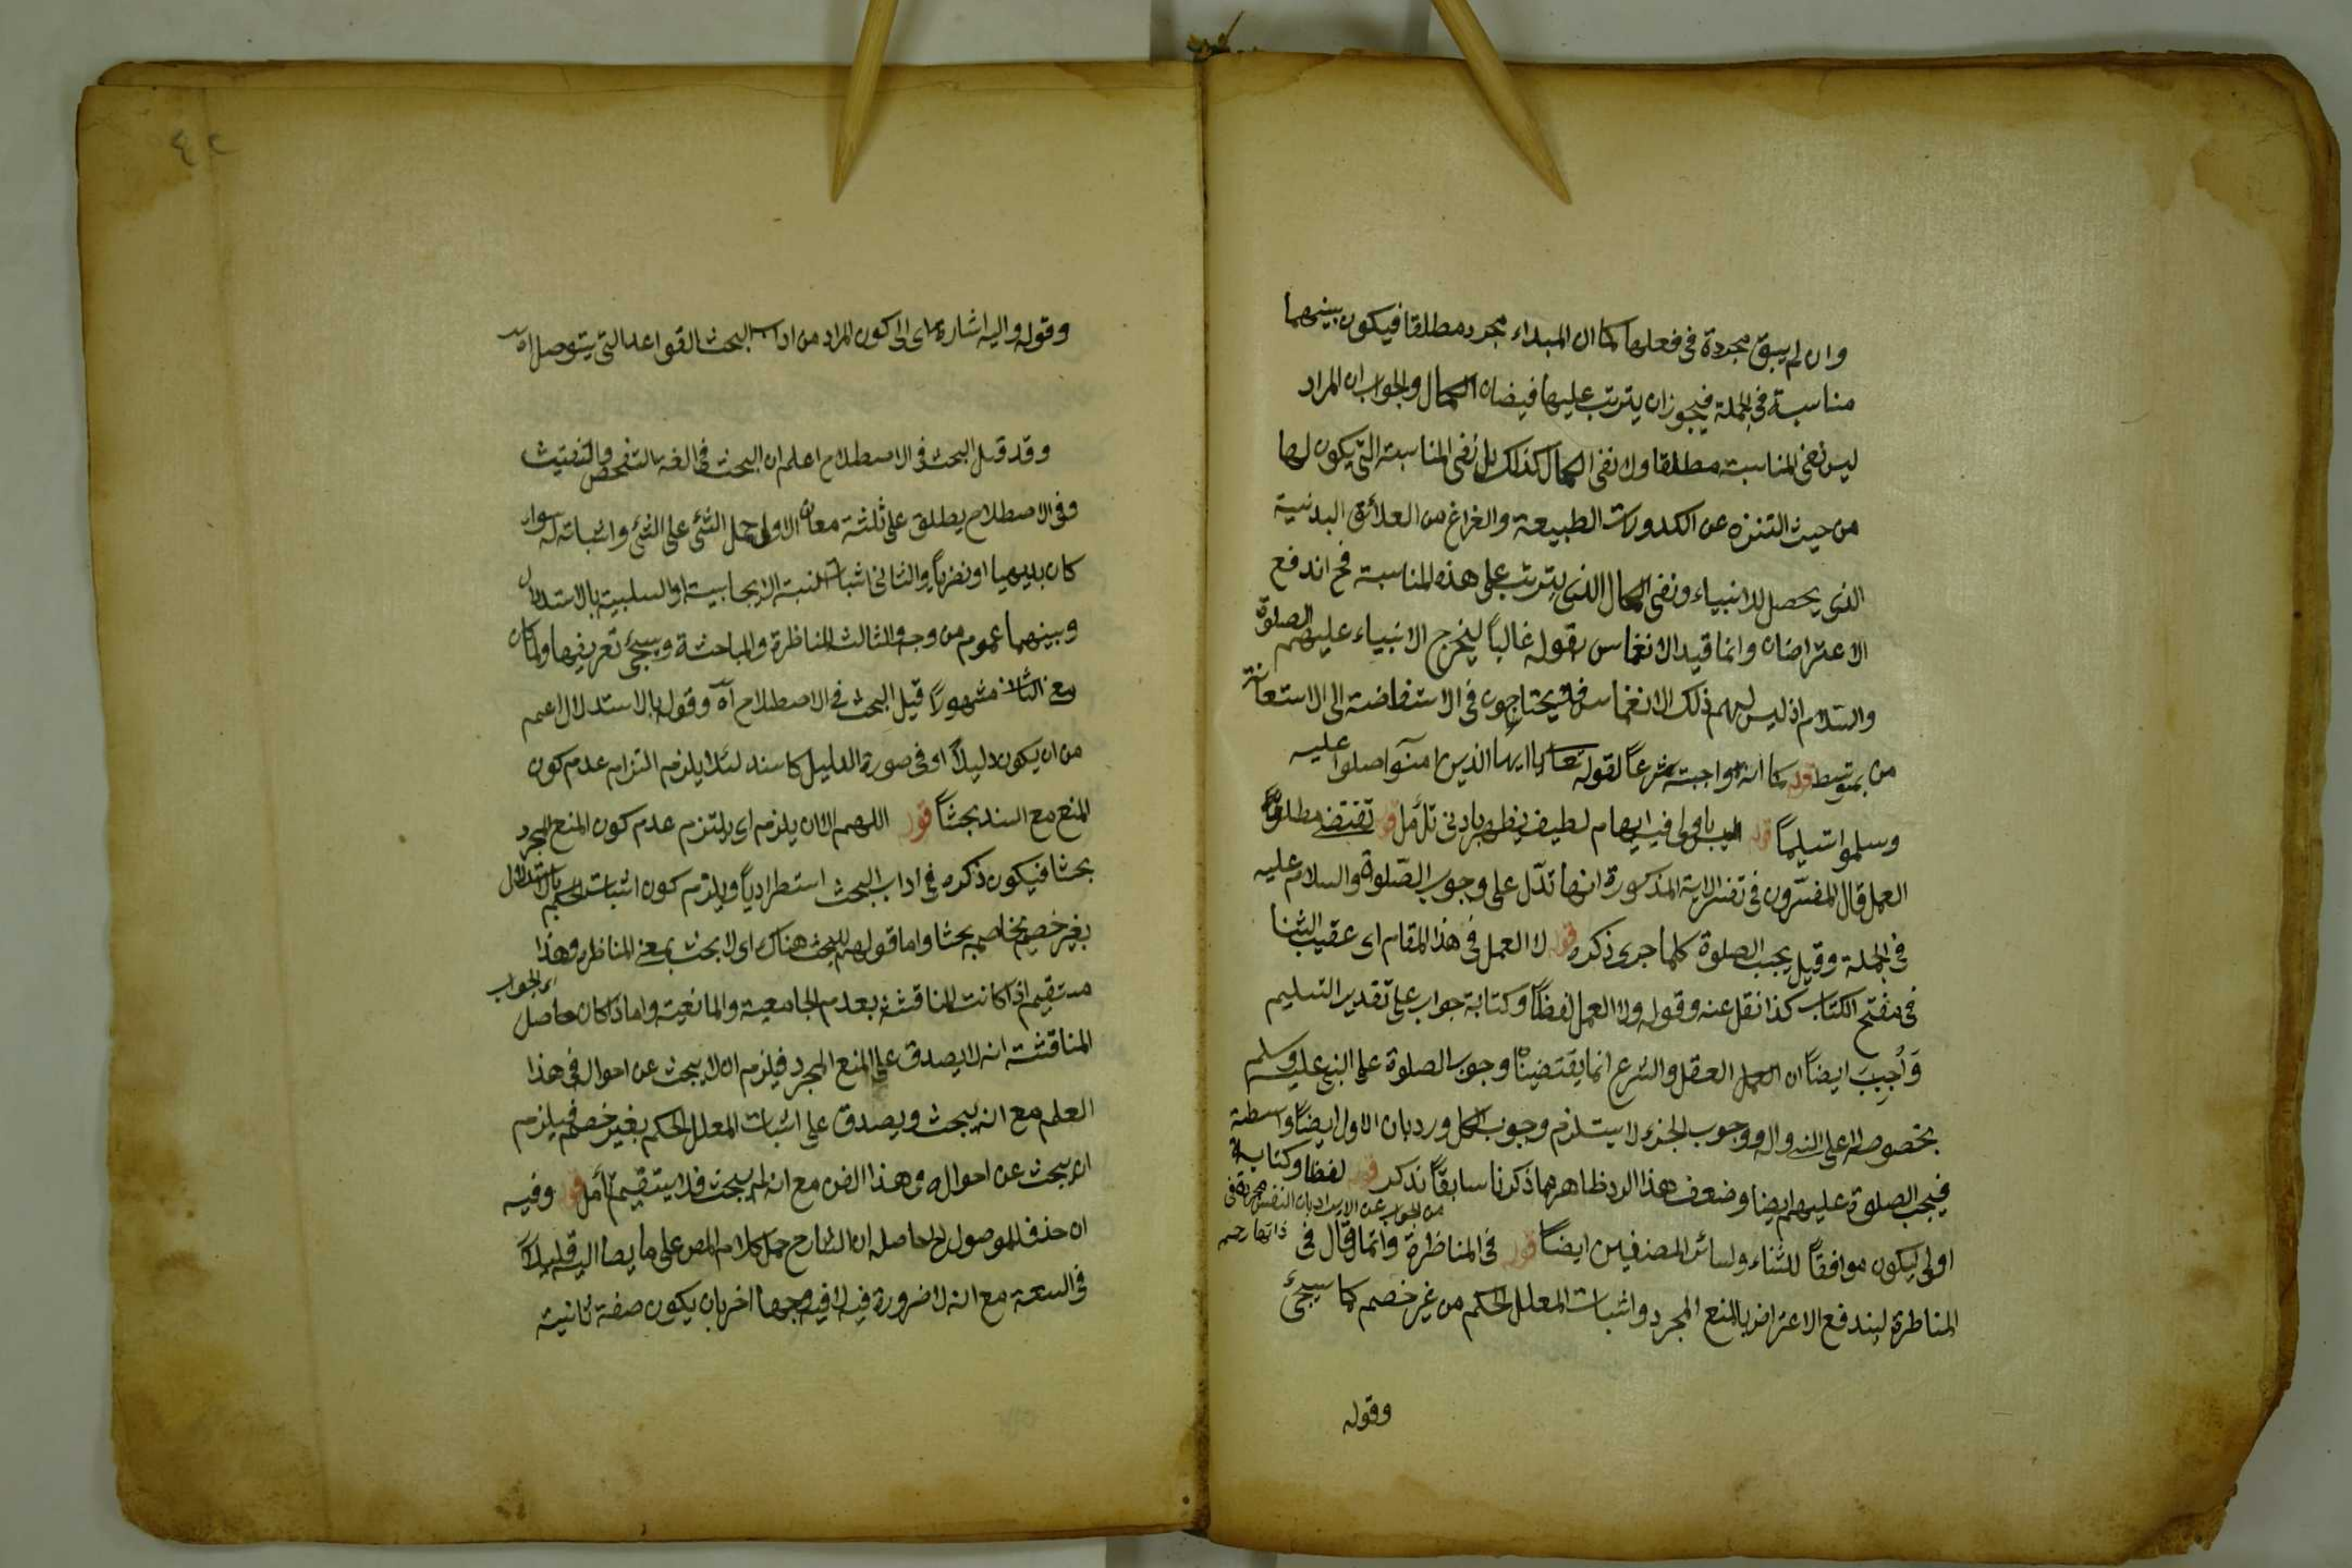 وان لم يبق مجردة في فعلها كما ان المبداء مجرد مطلقا فيكون بينهما
مناسبة في الجملة فيجوز ان يترتب عليها فيضان الكمال والجواب ان المراد
ليس نفى المناسبة مطلقا ولا نفى الكمال كذلك بل نفى المناسبة التى يكون لها
من حيث التنزه عن الكدورات الطبيعة والفراغ من العلائق البدنية
الذى يحصل للانبياء ونفى الكمال الذى يترتب على هذه المناسبة فح اندفع
الاعتراضان وانما قيد الانغماس بقوله غالباً ليخرج الانبياء عليهم الصلوة
والسلام اذ ليس لهم ذلك الانغماس فلا يحتاجون في الاستفاضة الى الاستعانة
من بمتوسط قوله كما انه واجبة شرعاً لقوله تعالى يا ايها الذين امنوا صلوا عليه
وسلموا تسليماً قوله فيه ايهام لطيف يظهر بادنى تأمل قوله تقتضى مطلق
العمل قال المفسرون في تفسير الاية المذكورة انها تدل على وجوب الصلوة والسلام عليه
في الجملة وقيل يجب الصلوة كلما جرى ذكره قوله لا العمل في هذا المقام اى عقيب الثنا
في مفتح الكتاب كذا نقل عنه وقوله ولا العمل لفظاً وكتابة جواب على تقدير التسليم
وَاُجِيبَ ايضاً ان العمل العقل والشرع انما يقتضيان وجوب الصلوة على النبى عليه وسلم
بخصوصه لا على اله ووجوب الجزء لا يستلزم وجوب الكل ورد بان الاول ايضاً واسطة
فيجب الصلوة عليهم ايضا وضعف هذا الرد ظاهر مما ذكرنا سابقاً تذكر قوله لفظا وكتابة
من الجواب عن الايراد بان النفس مجردة في ذاتها
اولى ليكون موافقاً للثناء ولسائر المصنفين ايضاً قوله في المناظرة وانما قال في
المناظرة ليندفع الاعتراض بالمنع المجرد واثبات المعلل الحكم من غير خصم كما سيجئ
وقوله
٤٢
وقوله واليه اشارة اى الى كون المراد من اداب البحث القواعد التى يتوصل اه
وقد قيل البحث في الاصطلاح اعلم ان البحث في اللغة التفحص والتفتيش
وفى الاصطلاح يطلق على ثلثة معان الاول حمل الشئ على الشئ واثباته له سواء
كان بديهيا او نظرياً والثانى اثبات النسبة الايجابية او السلبية بالاستدلال
وبينهما عموم من وجه والثالث المناظرة والمباحثة وسيجئ تعريفها ولما كان
معنى الثانى مشهوراً قيل البحث في الاصطلاح آه وقوله بالاستدلال اعم
من ان يكون دليلاً او في صورة الدليل كالسند لئلا يلزم التزام عدم كون
المنع مع السند بحثاً قوله اللهم الا ان يلزم اى يلتزم عدم كون المنع المجرد
بحثا فيكون ذكره في اداب البحث استطرادياً ويلزم كون اثبات الحكم بالاستدلال
بغير خصم يخاصم بحثا واما قولهم لا بحث هناك اى لا بحث بمعنى المناظرة وهذا
مستقيم اذا كانت المناقشة بعدم الجامعية والمانعية واما اذا كان حاصل الجواب
المناقشة انه لا يصدق على المنع المجرد فيلزم ان لا يبحث عن احواله في هذا
العلم مع انه يبحث ويصدق على اثبات المعلل الحكم بغير خصم فيلزم
ان يبحث عن احواله في هذا الفن مع انه لم يبحث فلا يستقيم تأمل قوله وفيه
ان حذف الموصول الخ حاصله ان الشارح حمل كلام المص على ما يصار اليه قليلاً
في السعة مع انه لا ضرورة فيه لا فيه وجها اخر بان يكون صفة ثانية